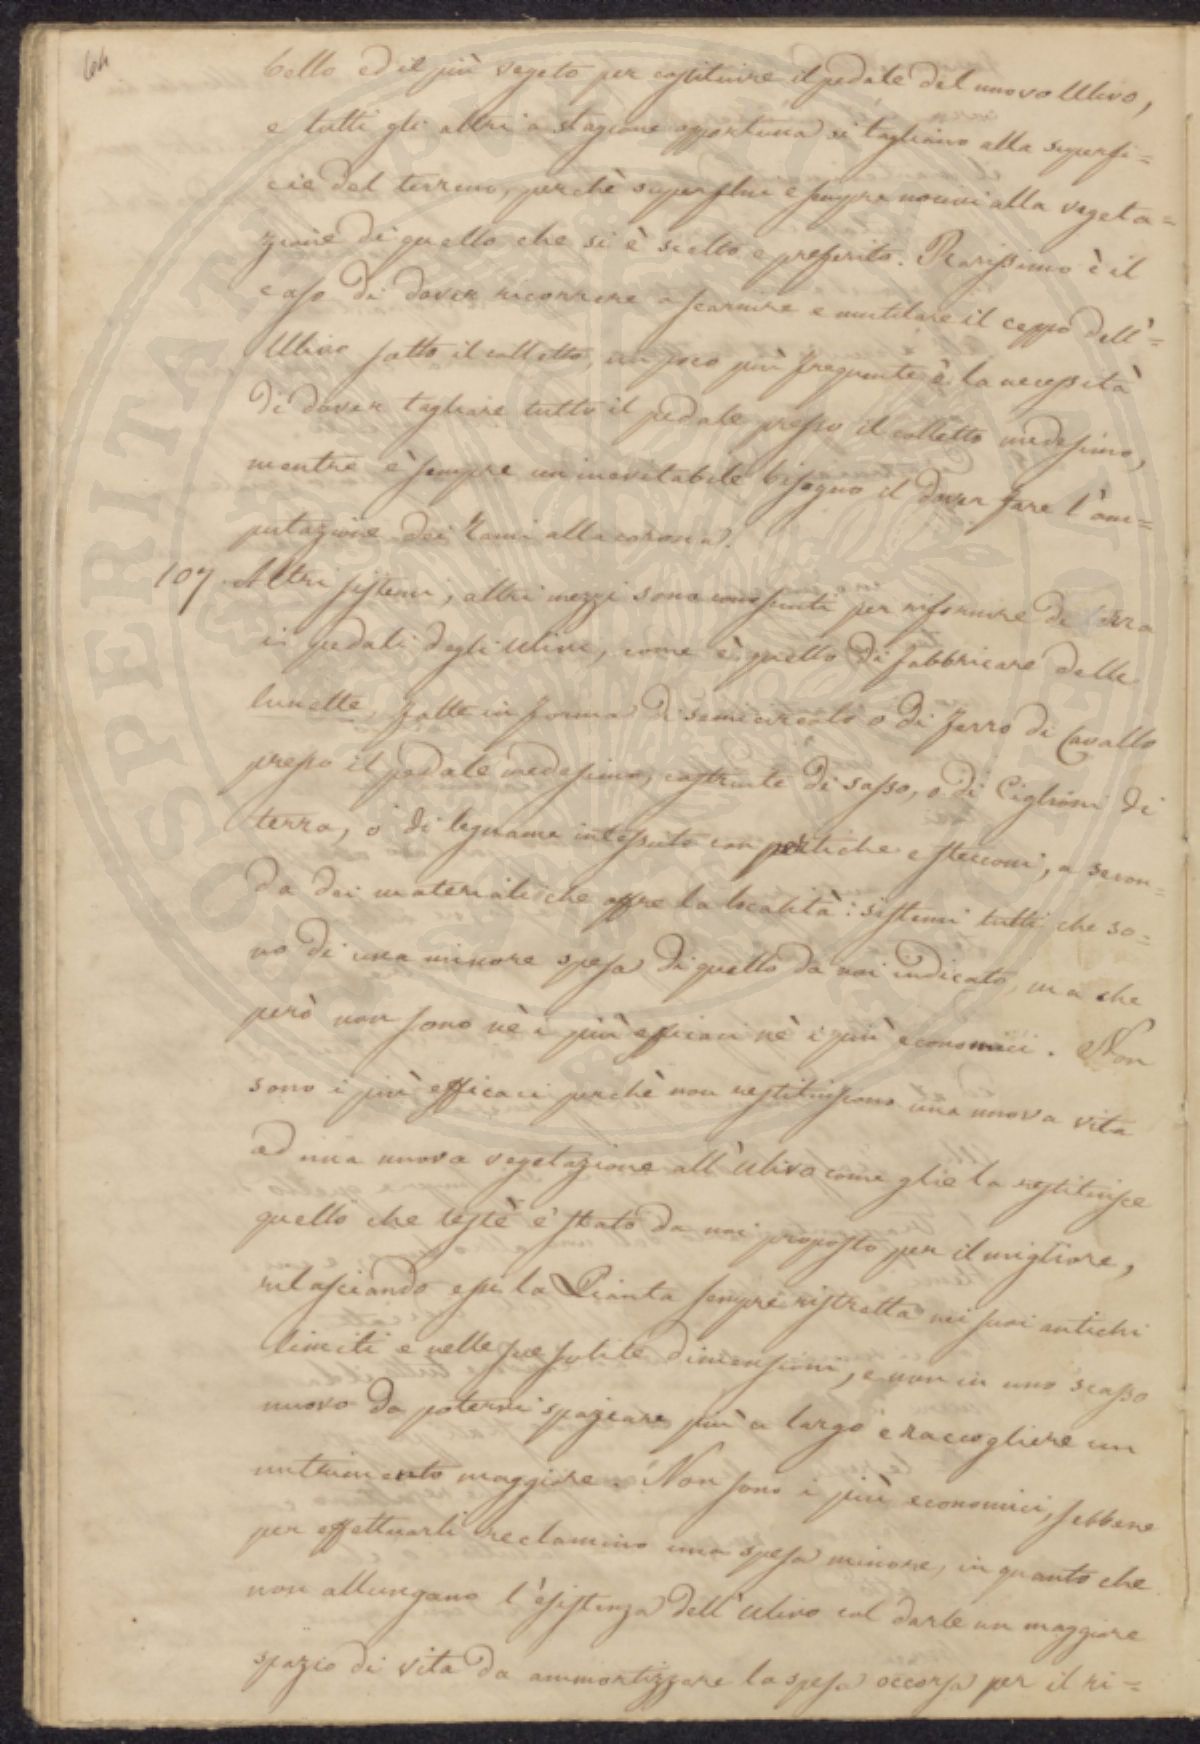 64
bello ed il più vegeto per costituire il pedale del nuovo Ulivo,
e tutti gli altri a stagione opportuna si tagliano alla superfi=
cie del terreno, perchè superflui e sempre nocivi alla vegeta=
zione di quello che si è scelto e preferito. Rarissimo è il
caso di dover ricorrere a scarnire e mutilare il ceppo dell'=
Ulivo sotto il colletto, un poco più frequente è la necessità
di dover tagliare tutto il pedale presso il colletto medesimo,
mentre è sempre un inevitabile bisogno il dover fare l'am=
putazione dei Rami alla corona.
107 Altri sistemi, altri mezzi sono conosciuti per rifornire di terra
i pedali degli Ulivi, come è quello di fabbricare delle
lunette, fatte in forma di semicircolo o di ferro di Cavallo
presso il pedale medesimo, costruite di sasso, o di Ciglioni di
terra, o di legname intessuto con pertiche e stecconi, a secon=
da dei materiali che offre la località: sistemi tutti che so=
no di una minore spesa di quello da noi indicato, ma che
però non sono nè i più efficaci nè i più economici. Non
sono i più efficaci perchè non restituiscono una nuova vita
ad una nuova vegetazione all'Ulivo come glie la restituisce
quello che testè è stato da noi proposto per il migliore,
rilasciando essi la Pianta sempre ristretta nei suoi antichi
limiti e nelle sue solite dimensioni, e non in uno scasso
nuovo da potervi spaziare più a largo e raccogliere un
nutrimento maggiore. Non sono i più economici, sebbene
per effettuarli reclamino una spesa minore, in quanto che
non allungano l'esistenza dell'Ulivo col darle un maggiore
spazio di vita da ammortizzare la spesa occorsa per il ri=
SPERITATI PVBLICAE